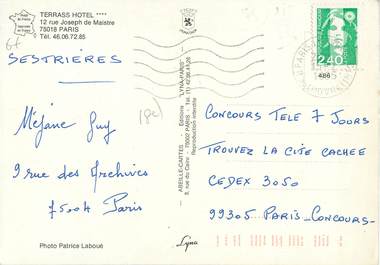 TERRASS HOTEL ****
12 rue Joseph de Maistre
75018 PARIS
Tél. 46.06.72.85
SESTRIÈRES
Méjane Guy
9 rue des Archives
75004 Paris
Photo Patrice Laboué
ABEILLE-CARTES - Editions "LYNA-PARIS"
8, rue du Caire - 75002 PARIS - Tél. (1) 42 36 41 28
Reproduction interdite
Lyna
2,40
486
CONCOURS TELE 7 JOURS
TROUVEZ LA CITE CACHEE
CEDEX 3050
99305 PARIS-CONCOURS-